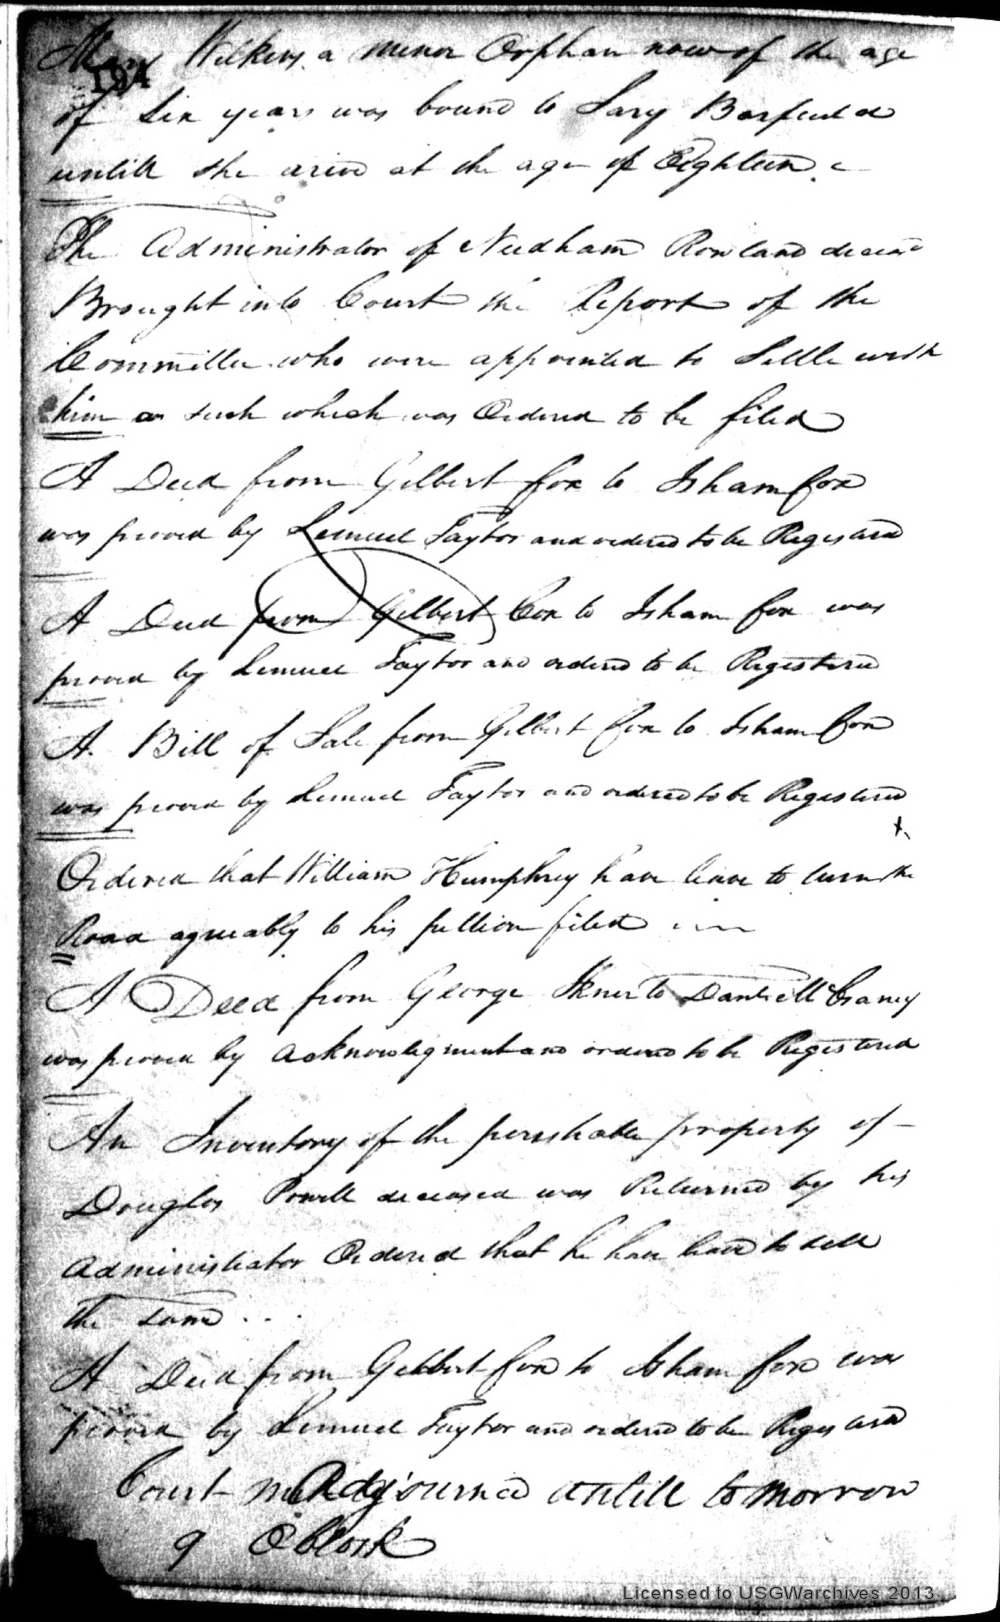 194
Mary Wilkins a minor Orphan now of the age
of Six years was bound to Sary Barfield
untill she arive at the age of Eighteen
The Administrator of Needham Rowland deceasd
Brought into Court the Report of the
Committee who were appointed to Settle with
him as such which was Ordered to be filed
A Deed from Gilbert Cox to Isham Cox
was proved by Lemuel Taylor and ordered to be Registered
A Deed from Gilbert Cox to Isham Cox was
proved by Lemuel Taylor and ordered to be Registered
A Bill of Sale from Gilbert Cox to Isham Cox
was proved by Lemuel Taylor and ordered to be Registered
Ordered that William Humphrey have leave to turn the
Road agreeably to his petition filed
A Deed from George to Craney
was proved by acknowlegment and ordered to be Registered
An Inventory of the perishable property of
Douglas Powell deceased was Returned by his
Administrator Ordered that he have leave to sell
the same
A Deed from Gilbert Cox to Isham Cox was
proved by Lemuel Taylor and ordered to be Registered
Court Adjourned untill tomorrow
9 OClock
Licensed to USGWarchives 2013